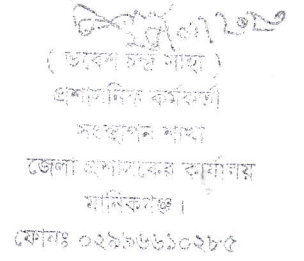 ( ভবেশ চন্দ্র সাহা )
প্রশাসনিক কর্মকর্তা
সংস্থাপন শাখা
জেলা প্রশাসকের কার্যালয়
মানিকগঞ্জ।
ফোনঃ ০২৯৯৬৬১০২৮৫